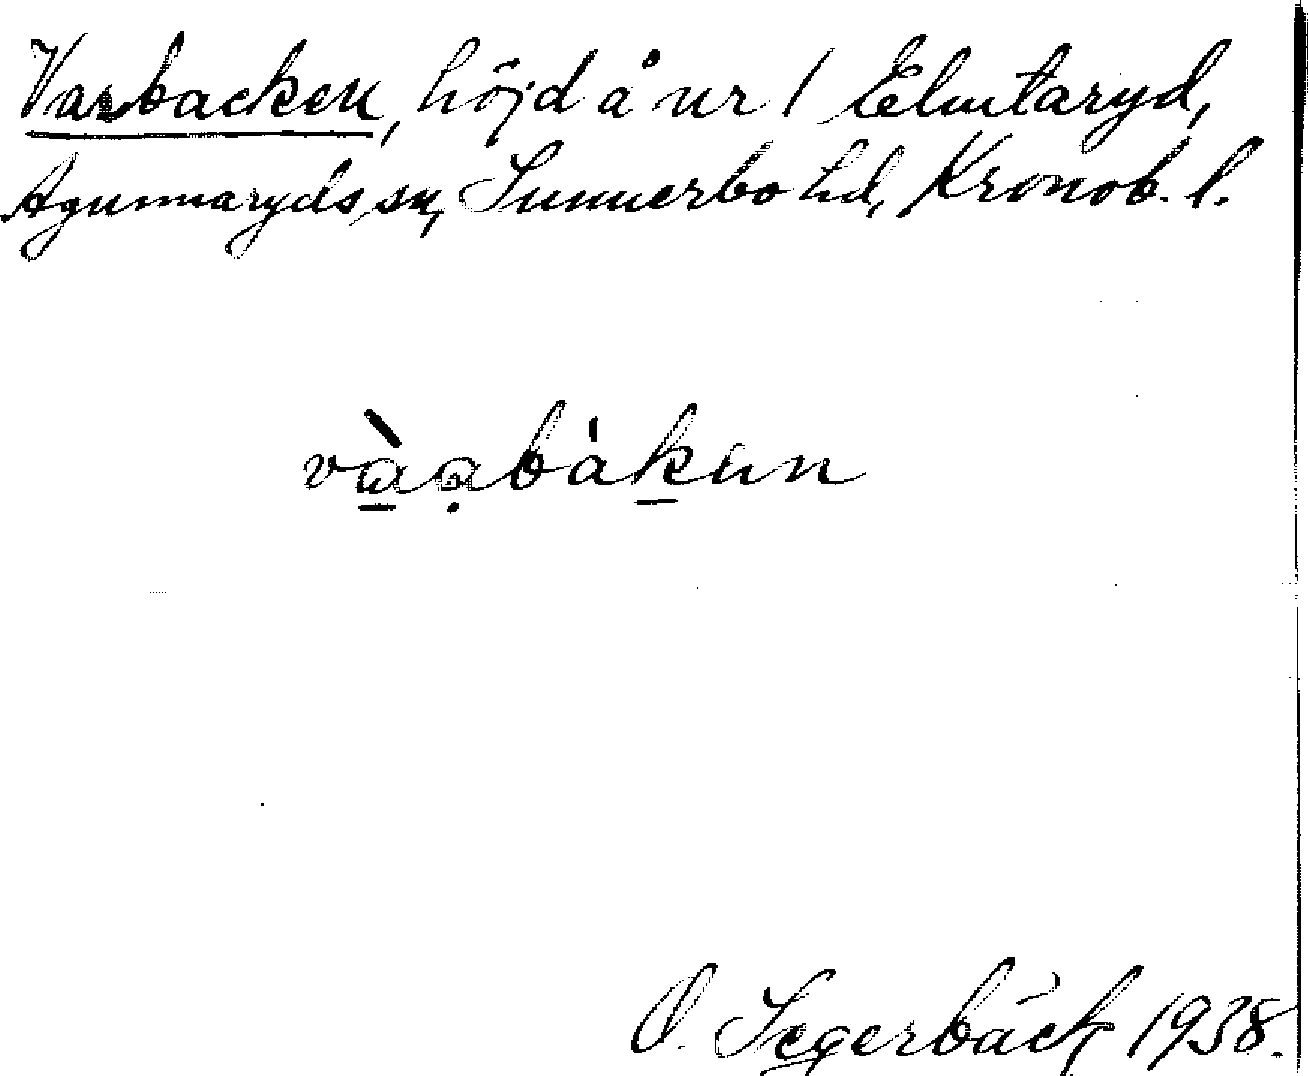 Varbacken, höjd å nr 1 Elmtaryd,
Agunnaryds sn, Sunnerbo hd, Kronob. l.
O. Segerbäck 1938.